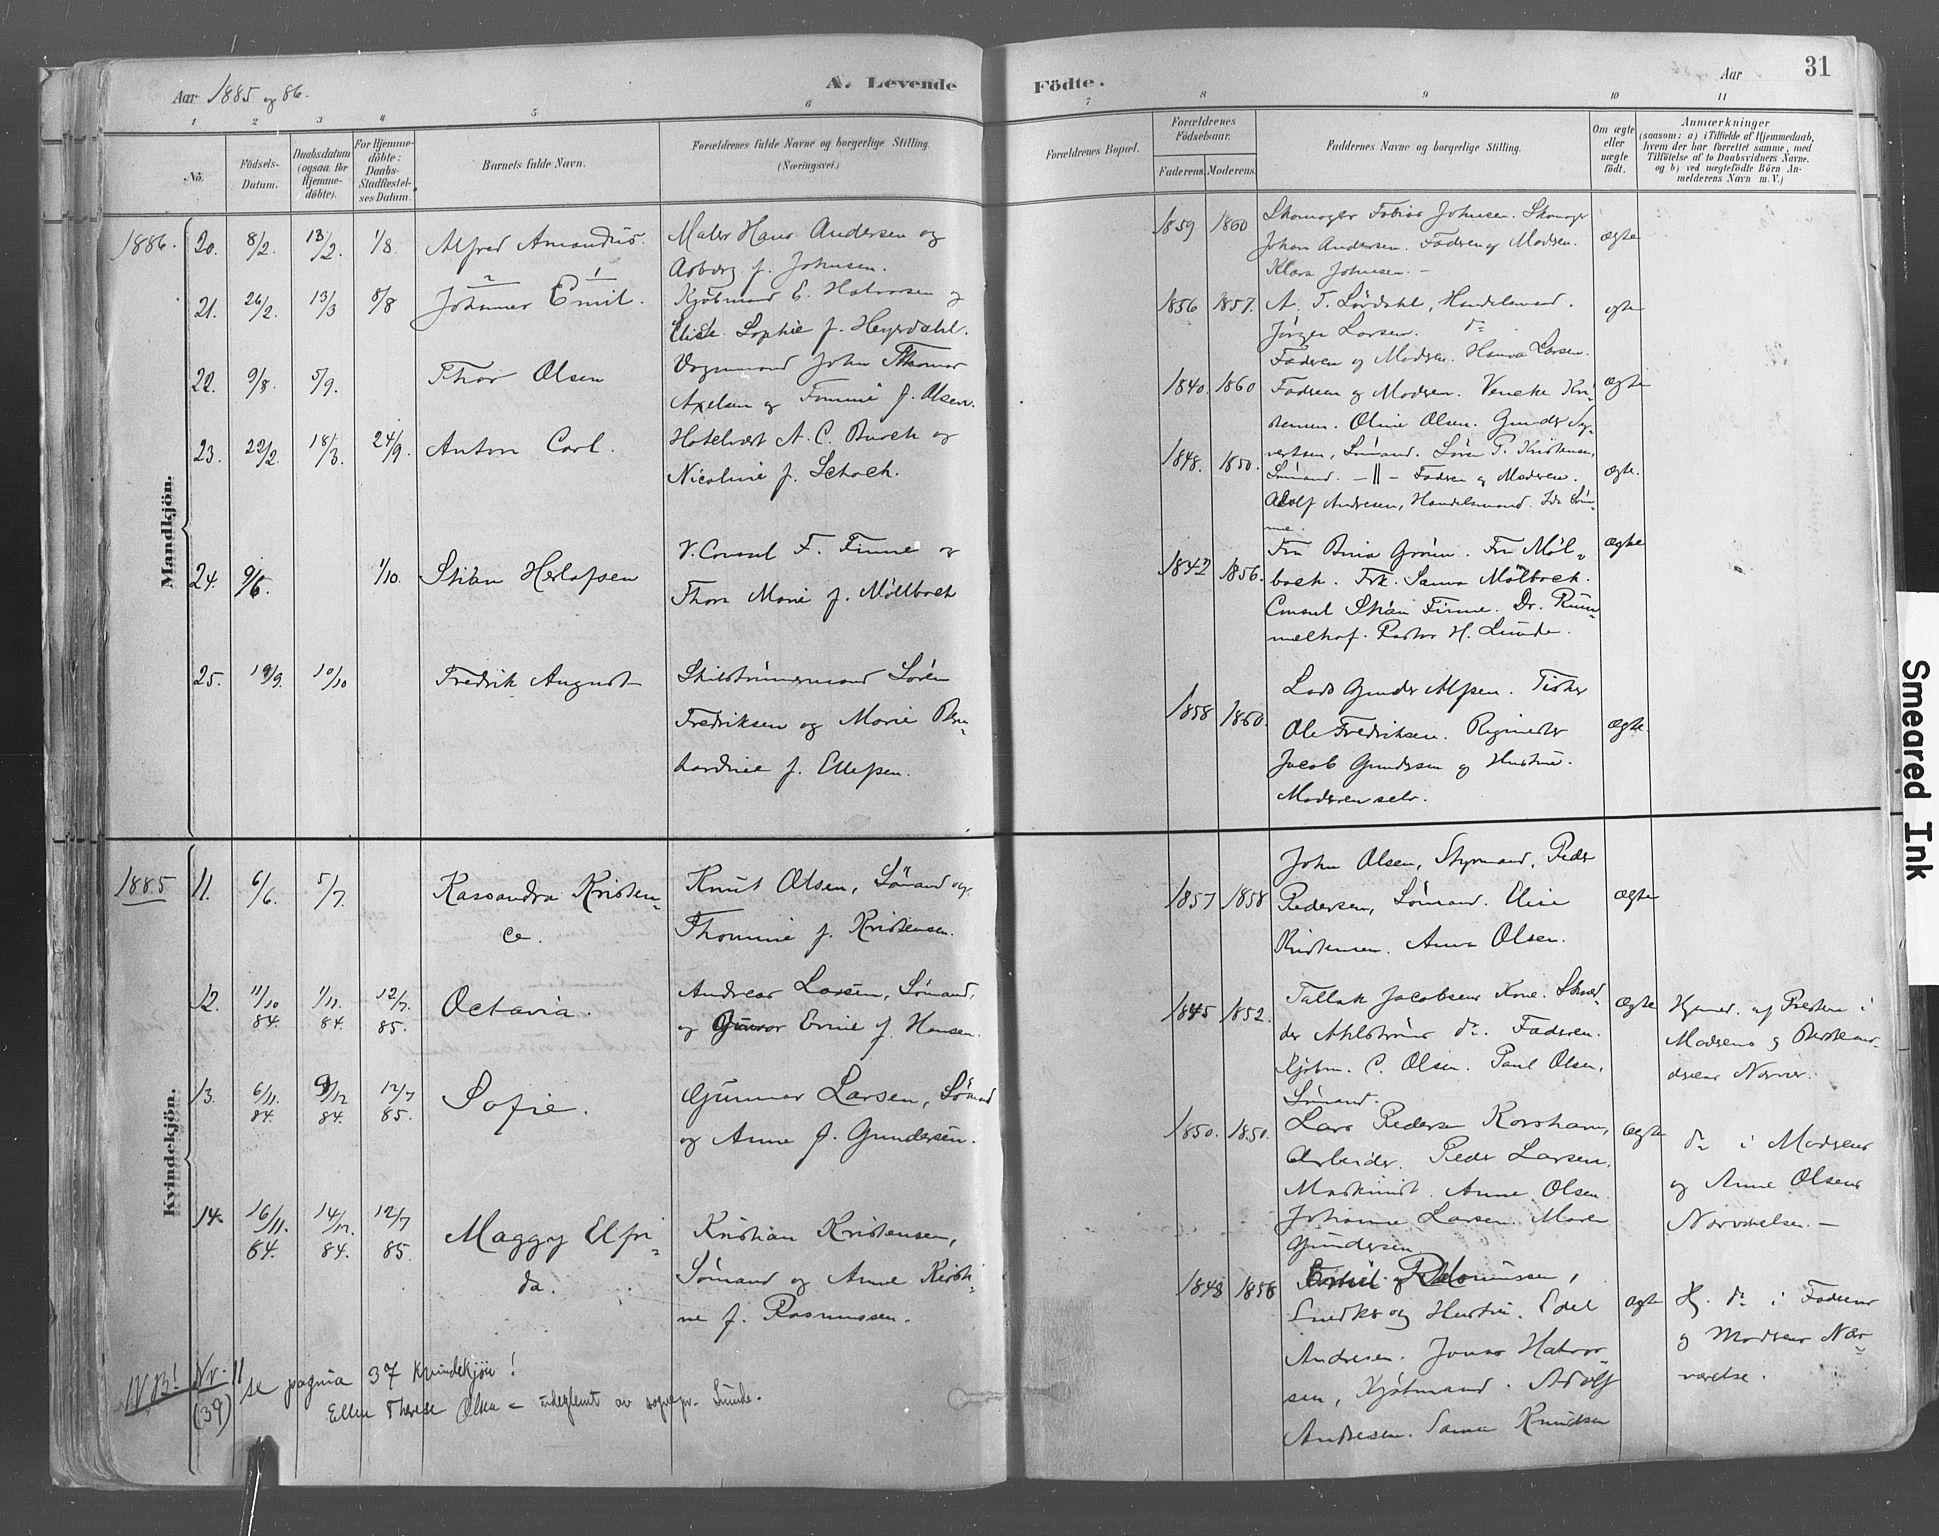 Aar 1885 og 86.
A. Levende Födte.
Aar
31
1 2 3 4 5 6 7 8 9 10 11
No.
Födsels-Datum.
Daabsdatum (ogsaa for Hjemme-döbte).
For Hjemme-döbte: Daabs-Stadfæstel-ses-Datum.
Barnets fulde Navn.
Forældrenes fulde Navne og borgerlige Stilling.
(Næringsvei.)
Forældrenes Bopæl.
Forældrenes Födselsaar.
Faderens. Moderens.
Faddernes Navne og borgerlige Stilling.
Om ægte eller uægte födt.
Anmærkninger
(saasom: a) i Tilfælde af Hjemmedaab, hvem der har forrettet samme, med Tilföielse af to Daabsvidners Navne. og b) ved uægtefödte Börn An-melderens Navn m. V.)
Mandkjön.
1886. 20. 8/2 13/2 1/8 Alfred Amandus.
Maler Hans Andersen og
Asberg f. Johnsen.
1859 1860
Skomager Tobias Johnsen. Skomager
Johan Andersen. Faderen og Modren.
Klara Johnsen. –
ægte
21. 26/2. 13/3 8/8 Johannes Emil.
Kjøbmand E. Halvorsen og
Elise Sophie f. Heyerdahl.
1856 1857.
A. T. Lövdahl, Handelsmand.
Jörgen Larsen. do
Faderen og Modren. Hanna Larsen.
ægte
22. 9/8. 5/9. Thor Olsen
Vognmand John Thomas
Axelsen og Tomine f. Olsen.
1840. 1860
Faderen og Modren. Veneke Kri-
stensen. Oline Olsen. Gunder Sy-
vertsen, Sömand. Sören P. Kristensen,
Sömand.
ægte
23. 22/2. 18/3. 24/9. Anton Carl.
Hotelvært A. C. Burch og
Nicoline f. Schoch.
1848. 1850.
– || – Fadren og Modren.
Adolf Andresen, Handelsmand.
ægte.
24. 9/6. 1/10. Stian Herlofsen
V. Consul F. Finne og
Thora Marie f. Möllbach
1842 1856.
Fru Grönn. Fru Möl-
bach. Frk. Sanna Mölbach.
Consul Stian Finne. Dr. Rum-
melhof. Pastor H. Lunde.
ægte
25. 19/9. 10/10 Fredrik August
Skibstömmermand Sören
Fredriksen og Marie Ber-
nardine f. Ellefsen.
1858 1860.
Lods Gunder Alfsen. Fisker
Ole Fredriksen.
Jacob Gundersen og Hustru.
Moderen selv.
ægte.
Kvindekjön.
1885 11. 6/6. 5/7. Kassandra Kristen-
ce.
Knut Olsen, Sömand og
Thomine f. Kristensen.
1857 1858
John Olsen, Styrmand, Peder
Pedersen, Sömand. Elise
Kristensen. Anna Olsen.
ægte
12. 11/10 84. 1/11. 84. 12/7. 85. Octavia.
Andreas Larsen, Sömand,
og Gunvor Emie f. Hansen.
1845 1852.
Tallak Jacobsens Kone. Skræd-
der Ahlströms do. Faderen.
Kjöbm. C. Olsen. Paul Olsen,
Sömand.
ægte
Hjemmed. af Presten i
Modrens og
Nærvær.
13. 6/11. 84. 9/12 84. 12/7 85. Sofie.
Gunner Larsen, Sömand
og Anne f. Gundersen.
1850. 1850.
Lars Pedersen Korshavn,
Arbeider. Peder Larsen,
Maskinist. Anne Olsen
Johanne Larsen. Maren
Gundersen
ægte
do i Modrens
og Anne Olsens
Nærværelse. –
14. 16/11. 84. 14/12. 84. 12/7 85. Maggy Elfri-
da.
Kristian Kristensen,
Sömand og Anne Kirsti-
ne f. Rasmussen.
1848 1856
Emil Rasmussen,
Snedker og Hustru. Edel
Andresen. Jonas Halvor-
sen, Kjöbmand. Adolf
Andresen. Sanna Knudsen
ægte
Hj. do i Fadrens
og Modrens Nær-
værelse.
NB! Nr. 11 se pagina 37 kvindekjön!
(39) Ellen Therese Olsen – uteglemt av sognepr. Lunde.
Smeared Ink